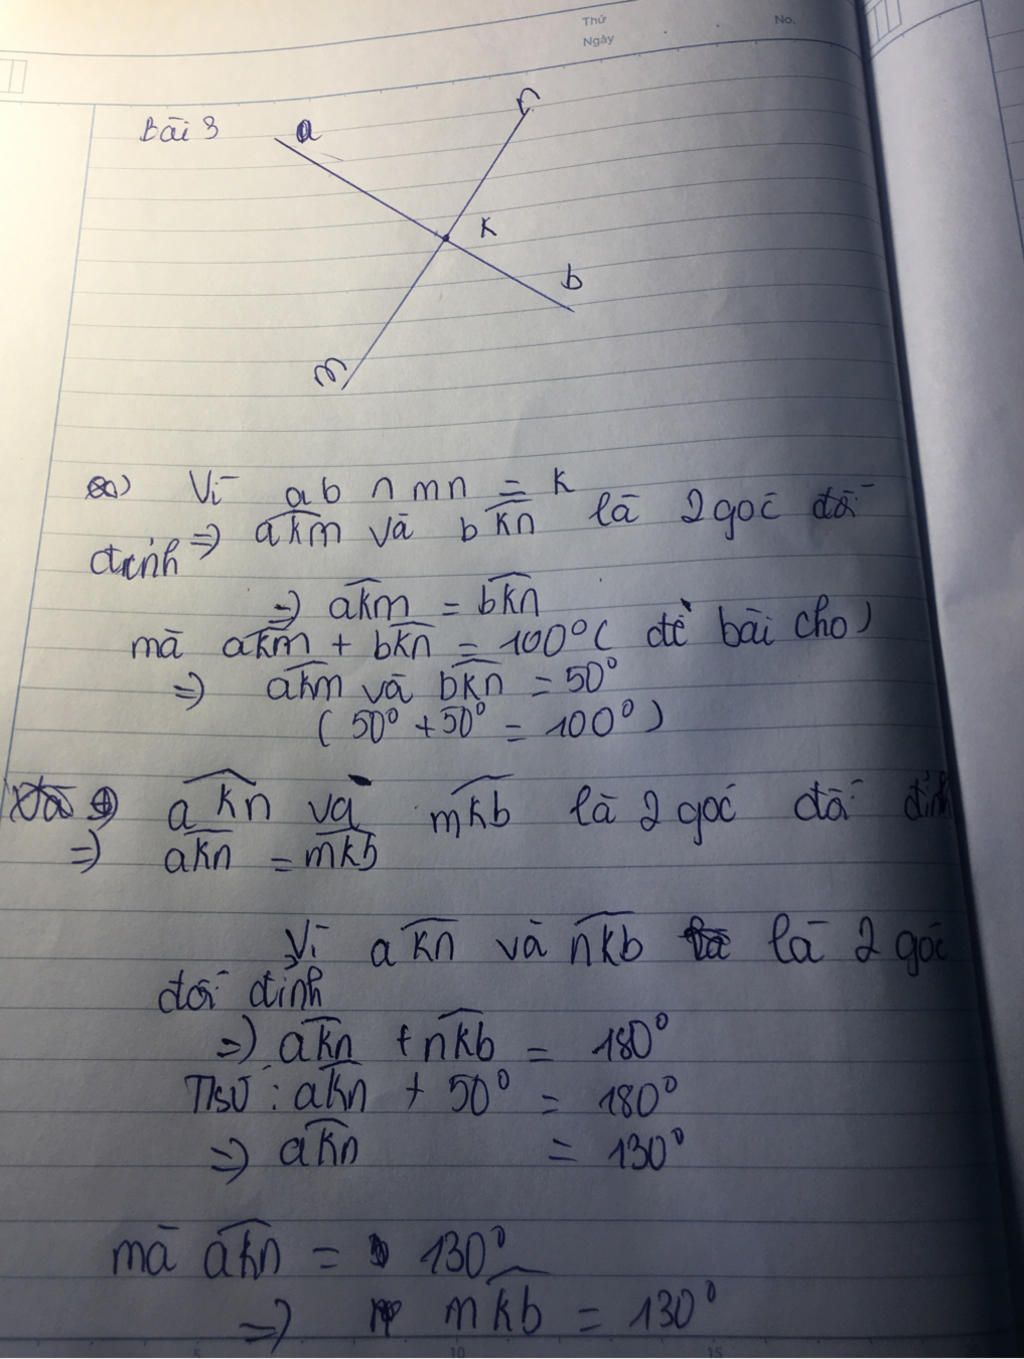 Thứ
Ngày
No.
Bài 3
a
n
K
b
m
a) Vì ab ∩ mn = K
⇒ akm và bkn là 2 góc đối
đỉnh
⇒ akm = bkn
mà akm + bkn = 100° ( đề bài cho )
⇒ akm và bkn = 50°
( 50° + 50° = 100° )
akn và mkb là 2 góc đối đỉnh
⇒ akn = mkb
Vì akn và nkb là 2 góc
đối đỉnh
⇒ akn + nkb = 180°
Tsu : akn + 50° = 180°
⇒ akn = 130°
mà akn = 130°
⇒ mkb = 130°
5 10 15